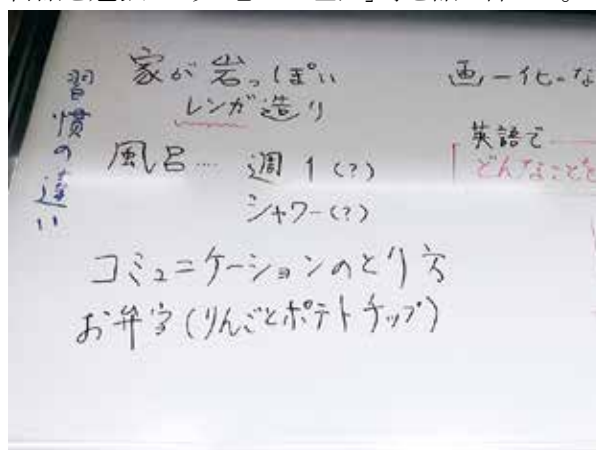 習慣の違い
家が岩っぽい
レンガ造り
風呂… 週1(?)
シャワー(?)
コミュニケーションのとり方
お弁当(りんごとポテトチップ)
画一化。な
英語で
どんなことを